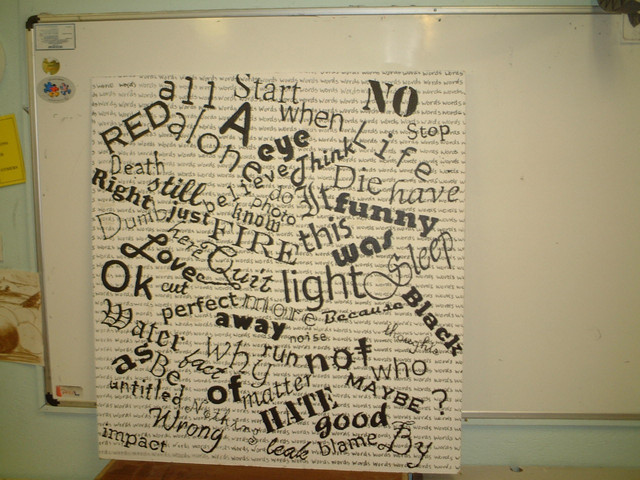 all Start NO
RED alone A when Life Stop
eye Think
Death believe Die have
Right still do It funny
photo
Dumb just know this
here FIRE was
Love Quit light Sleep
Ok cut
perfect more Because Black
Water away noise thoughts
as Be fact why run not who
untitled of matter MAYBE ?
Nothing HATE good
Wrong
impact leak blame By